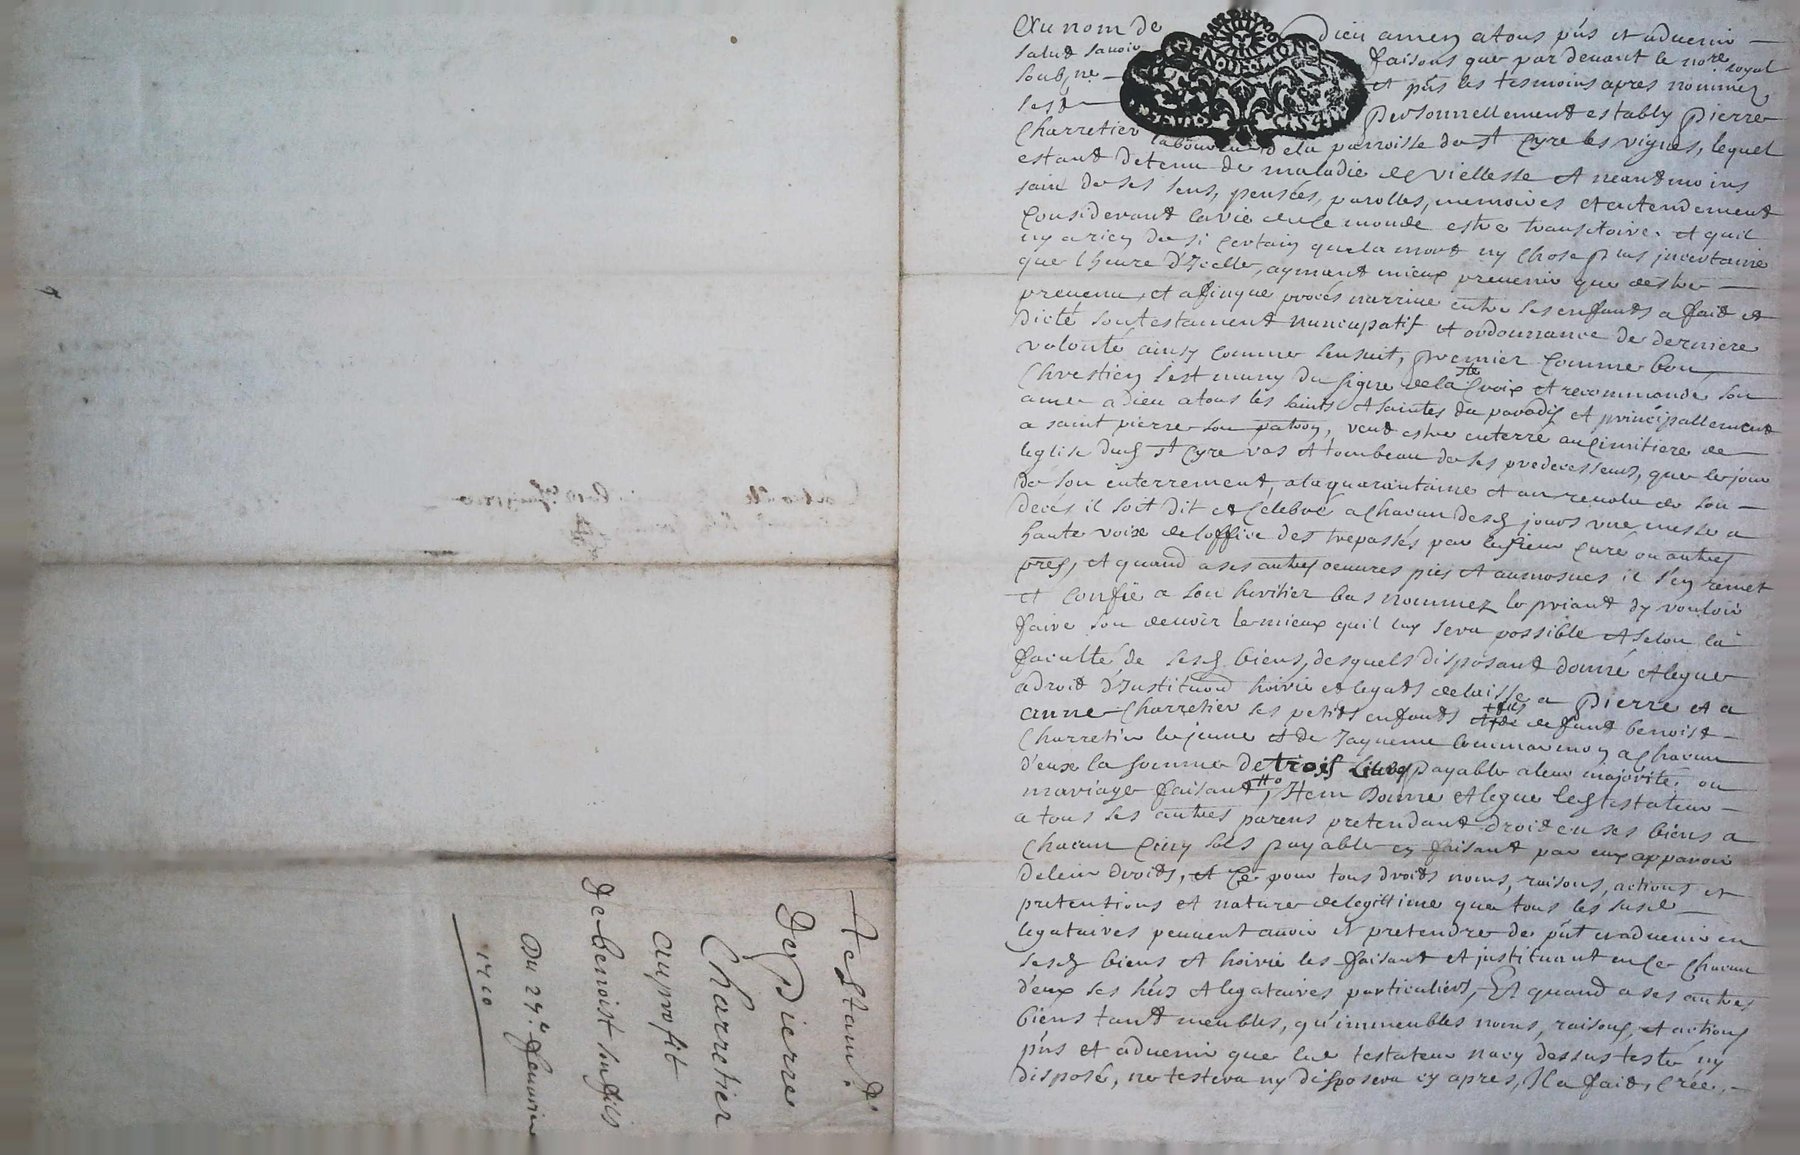 Au nom de Dieu amen a tous pn̄s et aduenir
salut savoir faisons que par devant le no.re royal
soub.ne et pn̄s les tesmoins apres nommez
Personnellement estably Pierre
Charretier laboureur de la parroisse de St Cyre les vignes, lequel
estant detenu de maladie et viellesse et neantmoins
sain de ses sens, pensées, parolles, memoires et entendement
Considerant la vie de ce monde estre transitoire, et quil
ny a rien de si certain que la mort ny chose plus incertaine
que l'heure d'Icelle, aymant mieux prevenir que destre
prevenu, et affin que procés narrive entre ses enfants a fait et
dicté son testament nuncupatif et ordonnance de derniere
volonté ainsy comme sensuit, premier comme bon
Chrestien sest muny du signe de la Ste Croix et recommandé son
ame a dieu a tous les saints et saintes du paradis et principallement
a saint pierre son patron, veut estre enterré au cimitiere de
leglise dud St Cyre vas et tombeau de ses predecesseurs, que le jour
de son enterrement, a la quarantaine et au revolu de son
decés il soit dit et celebré a chacun desd jours vne messe a
haute voix de loffice des trepassés par le sieur curé ou autres
pres, et quand a ses autres oeuures pies et aumosnes il s'en remet
et confie a son heritier bas nommez le priant dy vouloir
faire son devoir le mieux quil luy sera possible et selon la
faculté de sesd biens, desquels disposant donne et legue
a droit d'Institution hoirie et legats delaisse a Pierre et a
anne Charretier ses petits enfants de deffunt benoist
Charretier le jeune et de Jaqueme a chacun
d'eux la somme de trois livres payable a leur majorité ou
mariage faisant, Item Donne et legue led testateur
a tous ses autres parens pretendant droit en ses biens a
chacun cinq sols payable en faisant par eux apparoir
de leur droits, et ce pour tous droits noms, raisons, actions et
pretentions et nature de legittime que tous les susd
legataires peuuent auoir et pretendre de pn̄t et aduenir en
sesd biens et hoirie les faisant et instituant en ce chacun
d'eux ses hérs et legataires particuliers, Et quand a ses autres
biens tant meubles, qu'immeubles noms, raisons, et actions
pn̄s et aduenir que led testateur na cy dessus testé ny
disposé, ne testera ny disposera cy apres, Il a fait, créé,
Testam.t
De Pierre
Charretier
au profit
de benoist son fils
Du 29.e Januier